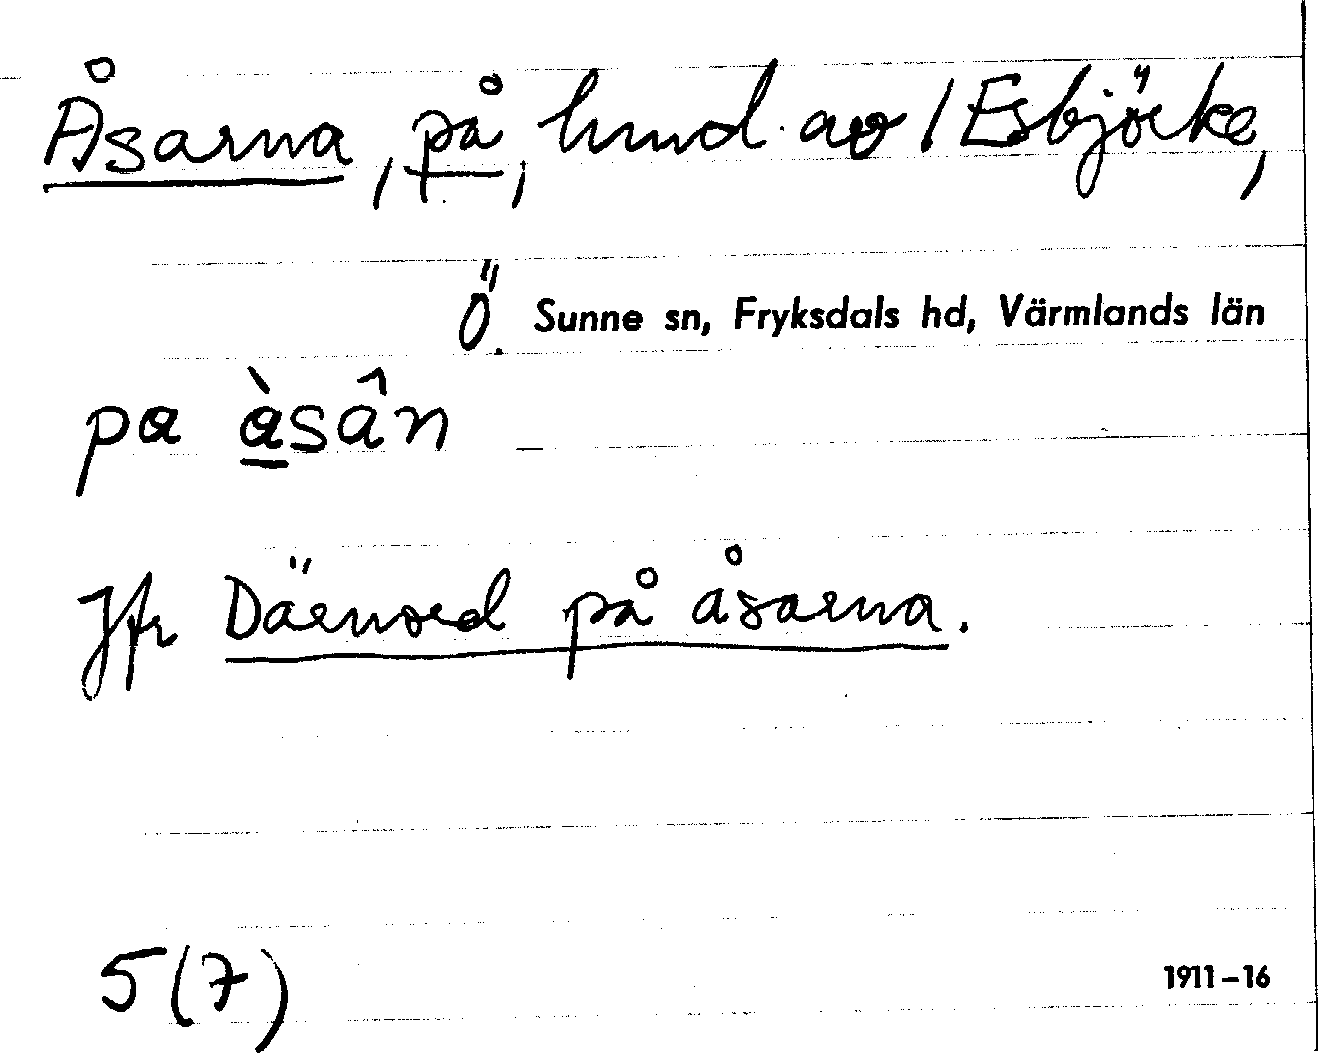 Åsarna, på, hmd. av 1 Esbjörke,
Ö. Sunne sn, Fryksdals hd, Värmlands län
pa àsân
Jfr Därnord på åsarna.
5(7)
1911-16